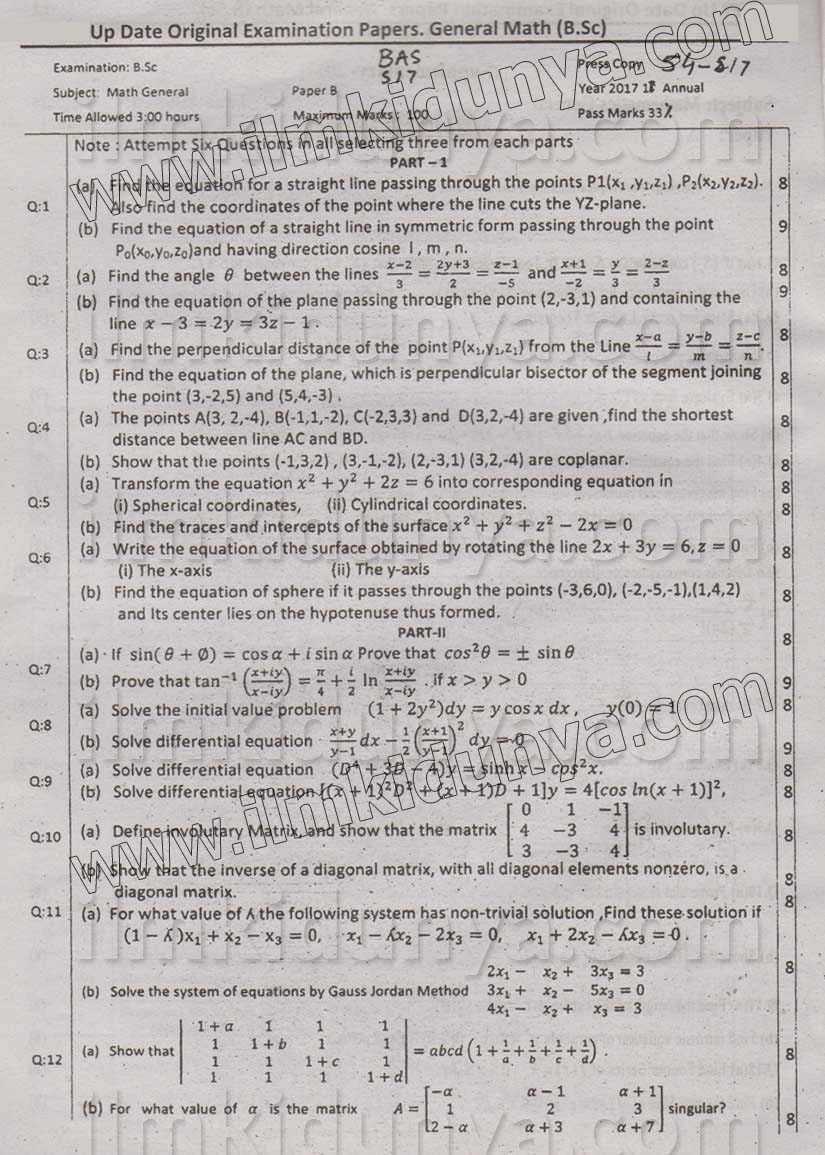 Up Date Original Examination Papers. General Math (B.Sc)
Examination: B.Sc
BAS
S17
Press Copy 54-S17
Subject: Math General
Paper B
Year 2017 18 Annual
Time Allowed 3:00 hours
Maximum Marks: 100
Pass Marks 33%
Note : Attempt Six Questions in all selecting three from each parts
PART – 1
Q:1 (a) Find the equation for a straight line passing through the points P1(x₁ ,y₁,z₁) ,P₂(x₂,y₂,z₂). 8
Also find the coordinates of the point where the line cuts the YZ-plane.
(b) Find the equation of a straight line in symmetric form passing through the point 9
P₀(x₀,y₀,z₀)and having direction cosine l , m , n.
Q:2 (a) Find the angle θ between the lines (x−2)/3 = (2y+3)/2 = (z−1)/−5 and (x+1)/−2 = y/3 = (2−z)/3 8
(b) Find the equation of the plane passing through the point (2,-3,1) and containing the 9
line x − 3 = 2y = 3z − 1 .
Q:3 (a) Find the perpendicular distance of the point P(x₁,y₁,z₁) from the Line (x−a)/l = (y−b)/m = (z−c)/n. 8
(b) Find the equation of the plane, which is perpendicular bisector of the segment joining 8
the point (3,-2,5) and (5,4,-3) .
Q:4 (a) The points A(3, 2,-4), B(-1,1,-2), C(-2,3,3) and D(3,2,-4) are given ,find the shortest 8
distance between line AC and BD.
(b) Show that the points (-1,3,2) , (3,-1,-2), (2,-3,1) (3,2,-4) are coplanar. 8
Q:5 (a) Transform the equation x² + y² + 2z = 6 into corresponding equation in 8
(i) Spherical coordinates, (ii) Cylindrical coordinates.
(b) Find the traces and intercepts of the surface x² + y² + z² − 2x = 0 8
Q:6 (a) Write the equation of the surface obtained by rotating the line 2x + 3y = 6, z = 0 8
(i) The x-axis (ii) The y-axis
(b) Find the equation of sphere if it passes through the points (-3,6,0), (-2,-5,-1),(1,4,2) 8
and Its center lies on the hypotenuse thus formed.
PART-II
Q:7 (a) If sin( θ + Ø) = cos α + i sin α Prove that cos²θ = ± sin θ 8
(b) Prove that tan⁻¹ ((x+iy)/(x−iy)) = π/4 + i/2 ln (x+iy)/(x−iy) . if x > y > 0 9
Q:8 (a) Solve the initial value problem (1 + 2y²)dy = y cos x dx , y(0) = 1 8
(b) Solve differential equation (x+y)/(y−1) dx − 1/2 ((x+1)/(y−1))² dy = 0 9
Q:9 (a) Solve differential equation (D⁴ + 3D − 4)y = sinh x − cos²x. 8
(b) Solve differential equation [(x + 1)²D² + (x + 1)D + 1]y = 4[cos ln(x + 1)]², 8
Q:10 (a) Define involutary Matrix, and show that the matrix [0 1 −1; 4 −3 4; 3 −3 4] is involutary. 8
(b) Show that the inverse of a diagonal matrix, with all diagonal elements nonzero, is a 8
diagonal matrix.
Q:11 (a) For what value of ʎ the following system has non-trivial solution ,Find these solution if 8
(1 − ʎ)x₁ + x₂ − x₃ = 0, x₁ − ʎx₂ − 2x₃ = 0, x₁ + 2x₂ − ʎx₃ = 0 .
2x₁ − x₂ + 3x₃ = 3 8
(b) Solve the system of equations by Gauss Jordan Method 3x₁ + x₂ − 5x₃ = 0
4x₁ − x₂ + x₃ = 3
Q:12 (a) Show that |1 + a 1 1 1; 1 1 + b 1 1; 1 1 1 + c 1; 1 1 1 1 + d| = abcd (1 + 1/a + 1/b + 1/c + 1/d) . 8
(b) For what value of α is the matrix A = [−α α − 1 α + 1; 1 2 3; 2 − α α + 3 α + 7] singular? 8
www.ilmkidunya.com
www.ilmkidunya.com
ilmkidunya.com